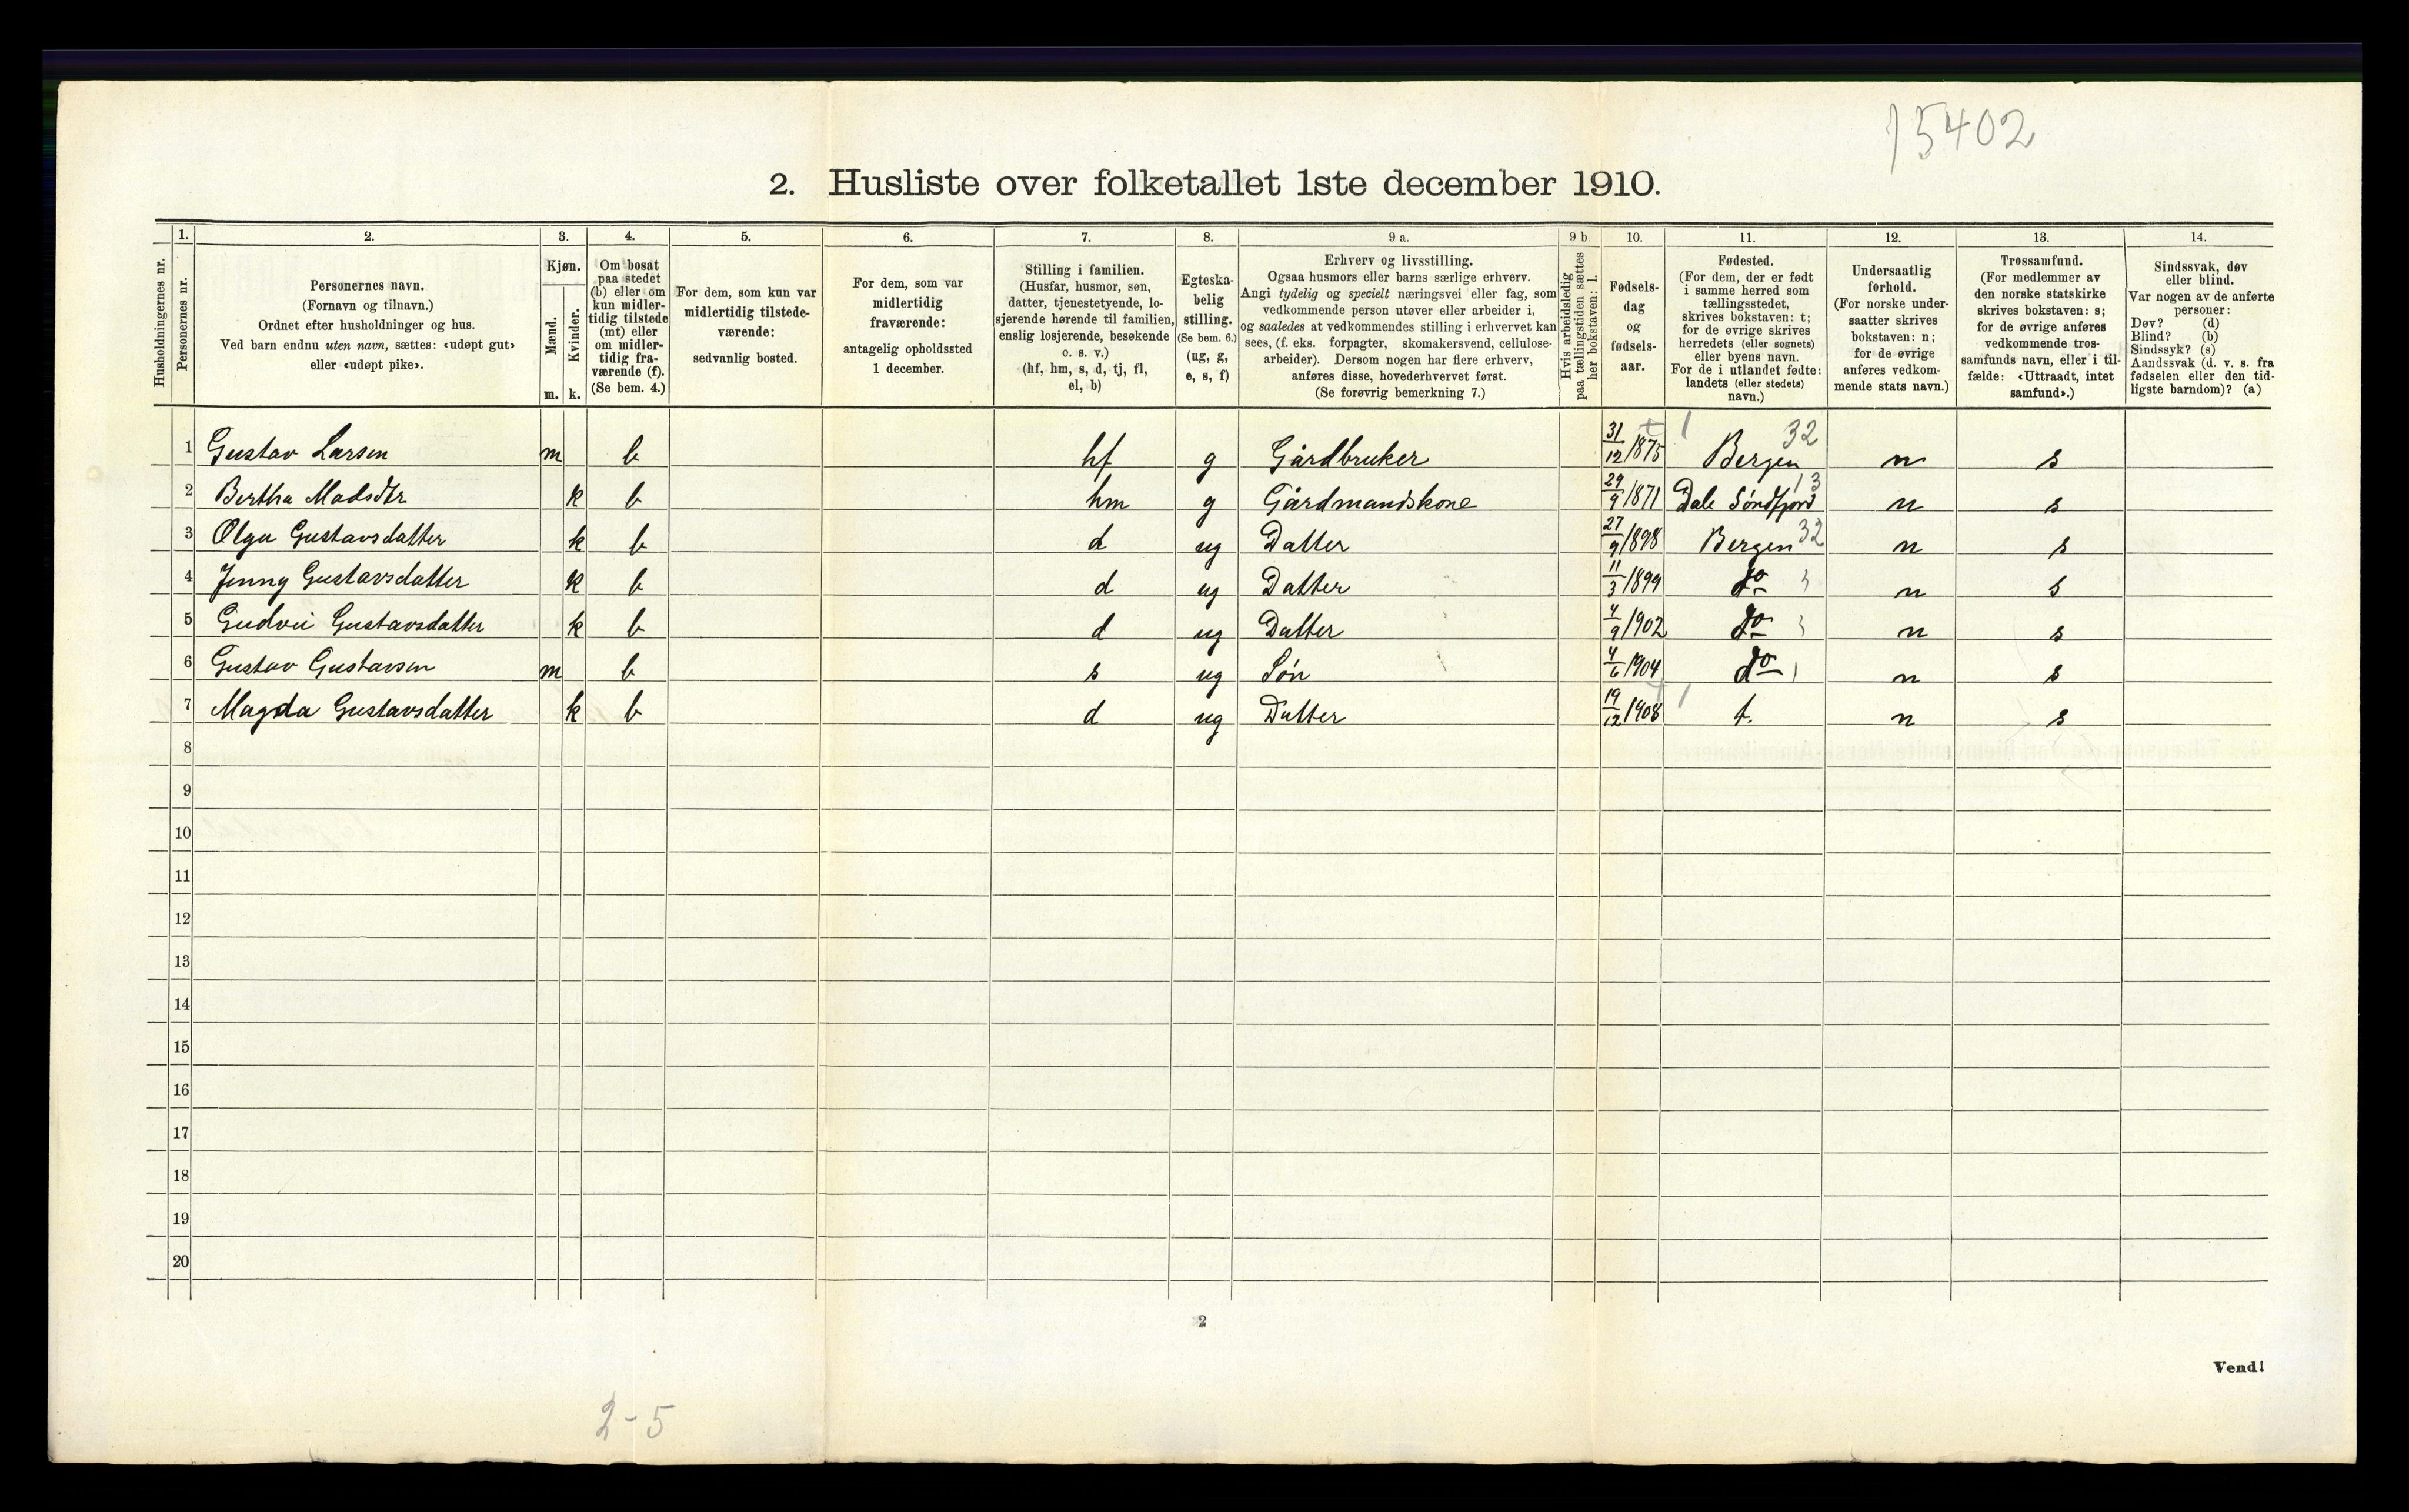 15402
2. Husliste over folketallet 1ste december 1910.
Husholdningernes nr.
1.
Personernes nr.
2.
Personernes navn.
(Fornavn og tilnavn.)
Ordnet efter husholdninger og hus.
Ved barn endnu uten navn, sættes: «udøpt gut»
eller «udøpt pike».
3.
Kjøn.
Mænd.
Kvinder.
m. k.
4.
Om bosat
paa stedet
(b) eller om
kun midler-
tidig tilstede
(mt) eller
om midler-
tidig fra-
værende (f).
(Se bem. 4.)
5.
For dem, som kun var
midlertidig tilstede-
værende:
sedvanlig bosted.
6.
For dem, som var
midlertidig
fraværende:
antagelig opholdssted
1 december.
7.
Stilling i familien.
(Husfar, husmor, søn,
datter, tjenestetyende, lo-
sjerende hørende til familien,
enslig losjerende, besøkende
o. s. v.)
(hf, hm, s, d, tj, fl,
el, b)
8.
Egteska-
belig
stilling.
(Se bem. 6.)
(ug, g,
e, s, f)
9 a.
Erhverv og livsstilling.
Ogsaa husmors eller barns særlige erhverv.
Angi tydelig og specielt næringsvei eller fag, som
vedkommende person utøver eller arbeider i,
og saaledes at vedkommendes stilling i erhvervet kan
sees, (f. eks. forpagter, skomakersvend, cellulose-
arbeider). Dersom nogen har flere erhverv,
anføres disse, hovederhvervet først.
(Se forøvrig bemerkning 7.)
9 b
Hvis arbeidsledig
paa tællingstiden sættes
her bokstaven: l.
10.
Fødsels-
dag
og
fødsels-
aar.
11.
Fødested.
(For dem, der er født
i samme herred som
tællingsstedet,
skrives bokstaven: t;
for de øvrige skrives
herredets (eller sognets)
eller byens navn.
For de i utlandet fødte:
landets (eller stedets)
navn.)
12.
Undersaatlig
forhold.
(For norske under-
saatter skrives
bokstaven: n;
for de øvrige
anføres vedkom-
mende stats navn.)
13.
Trossamfund.
(For medlemmer av
den norske statskirke
skrives bokstaven: s;
for de øvrige anføres
vedkommende tros-
samfunds navn, eller i til-
fælde: «Uttraadt, intet
samfund».)
14.
Sindssvak, døv
eller blind.
Var nogen av de anførte
personer:
Døv? (d)
Blind? (b)
Sindssyk? (s)
Aandssvak (d. v. s. fra
fødselen eller den tid-
ligste barndom)? (a)
1 Gustav Larsen m b hf g Gårdbruker 31/12 1875 Bergen 32 n s
2 Bertha Madsdtr k b hm g Gårdmandskone 29/9 1871 Dale Söndfjord 13 n s
3 Olga Gustavsdatter k b d ug Datter 27/9 1898 Bergen 32 n s
4 Jenny Gustavsdatter k b d ug Datter 11/3 1899 do n s
5 Gudvei Gustavsdatter k b d ug Datter 4/9 1902 do n s
6 Gustav Gustavsen m b s ug Sön 4/6 1904 do n s
7 Magda Gustavsdatter k b d ug Datter 19/12 1908 t. n s
8
9
10
11
12
13
14
15
16
17
18
19
20
2
Vend!
2-5